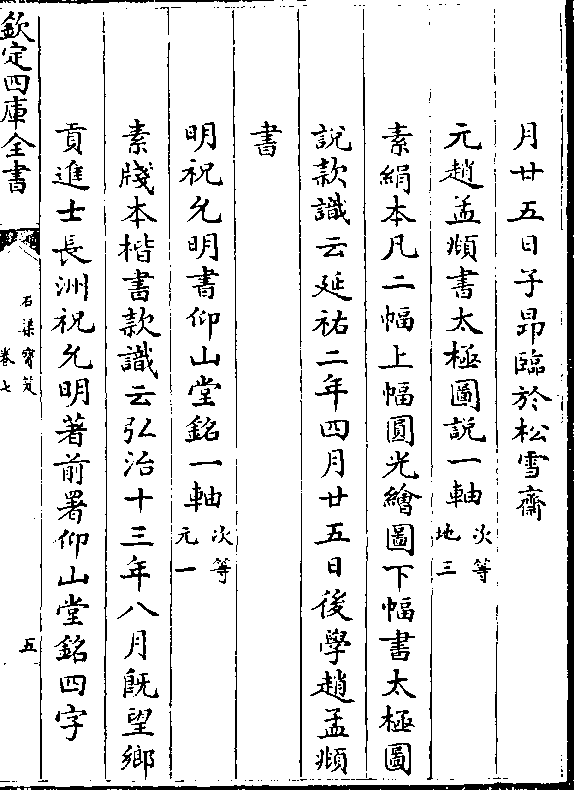 月廿五日子昻臨於松雪齋
元趙孟頫書太極圖説一軸次等地三
素絹本凡二幅上幅圓光繪圖下幅書太極圖
説款識云延祐二年四月廿五日後學趙孟頫
書
明祝允明書仰山堂銘一軸次等元一
素牋本楷書款識云弘治十三年八月旣望鄉
貢進士長洲祝允明著前署仰山堂銘四字
欽定四庫全書
石渠寳笈
卷七
五